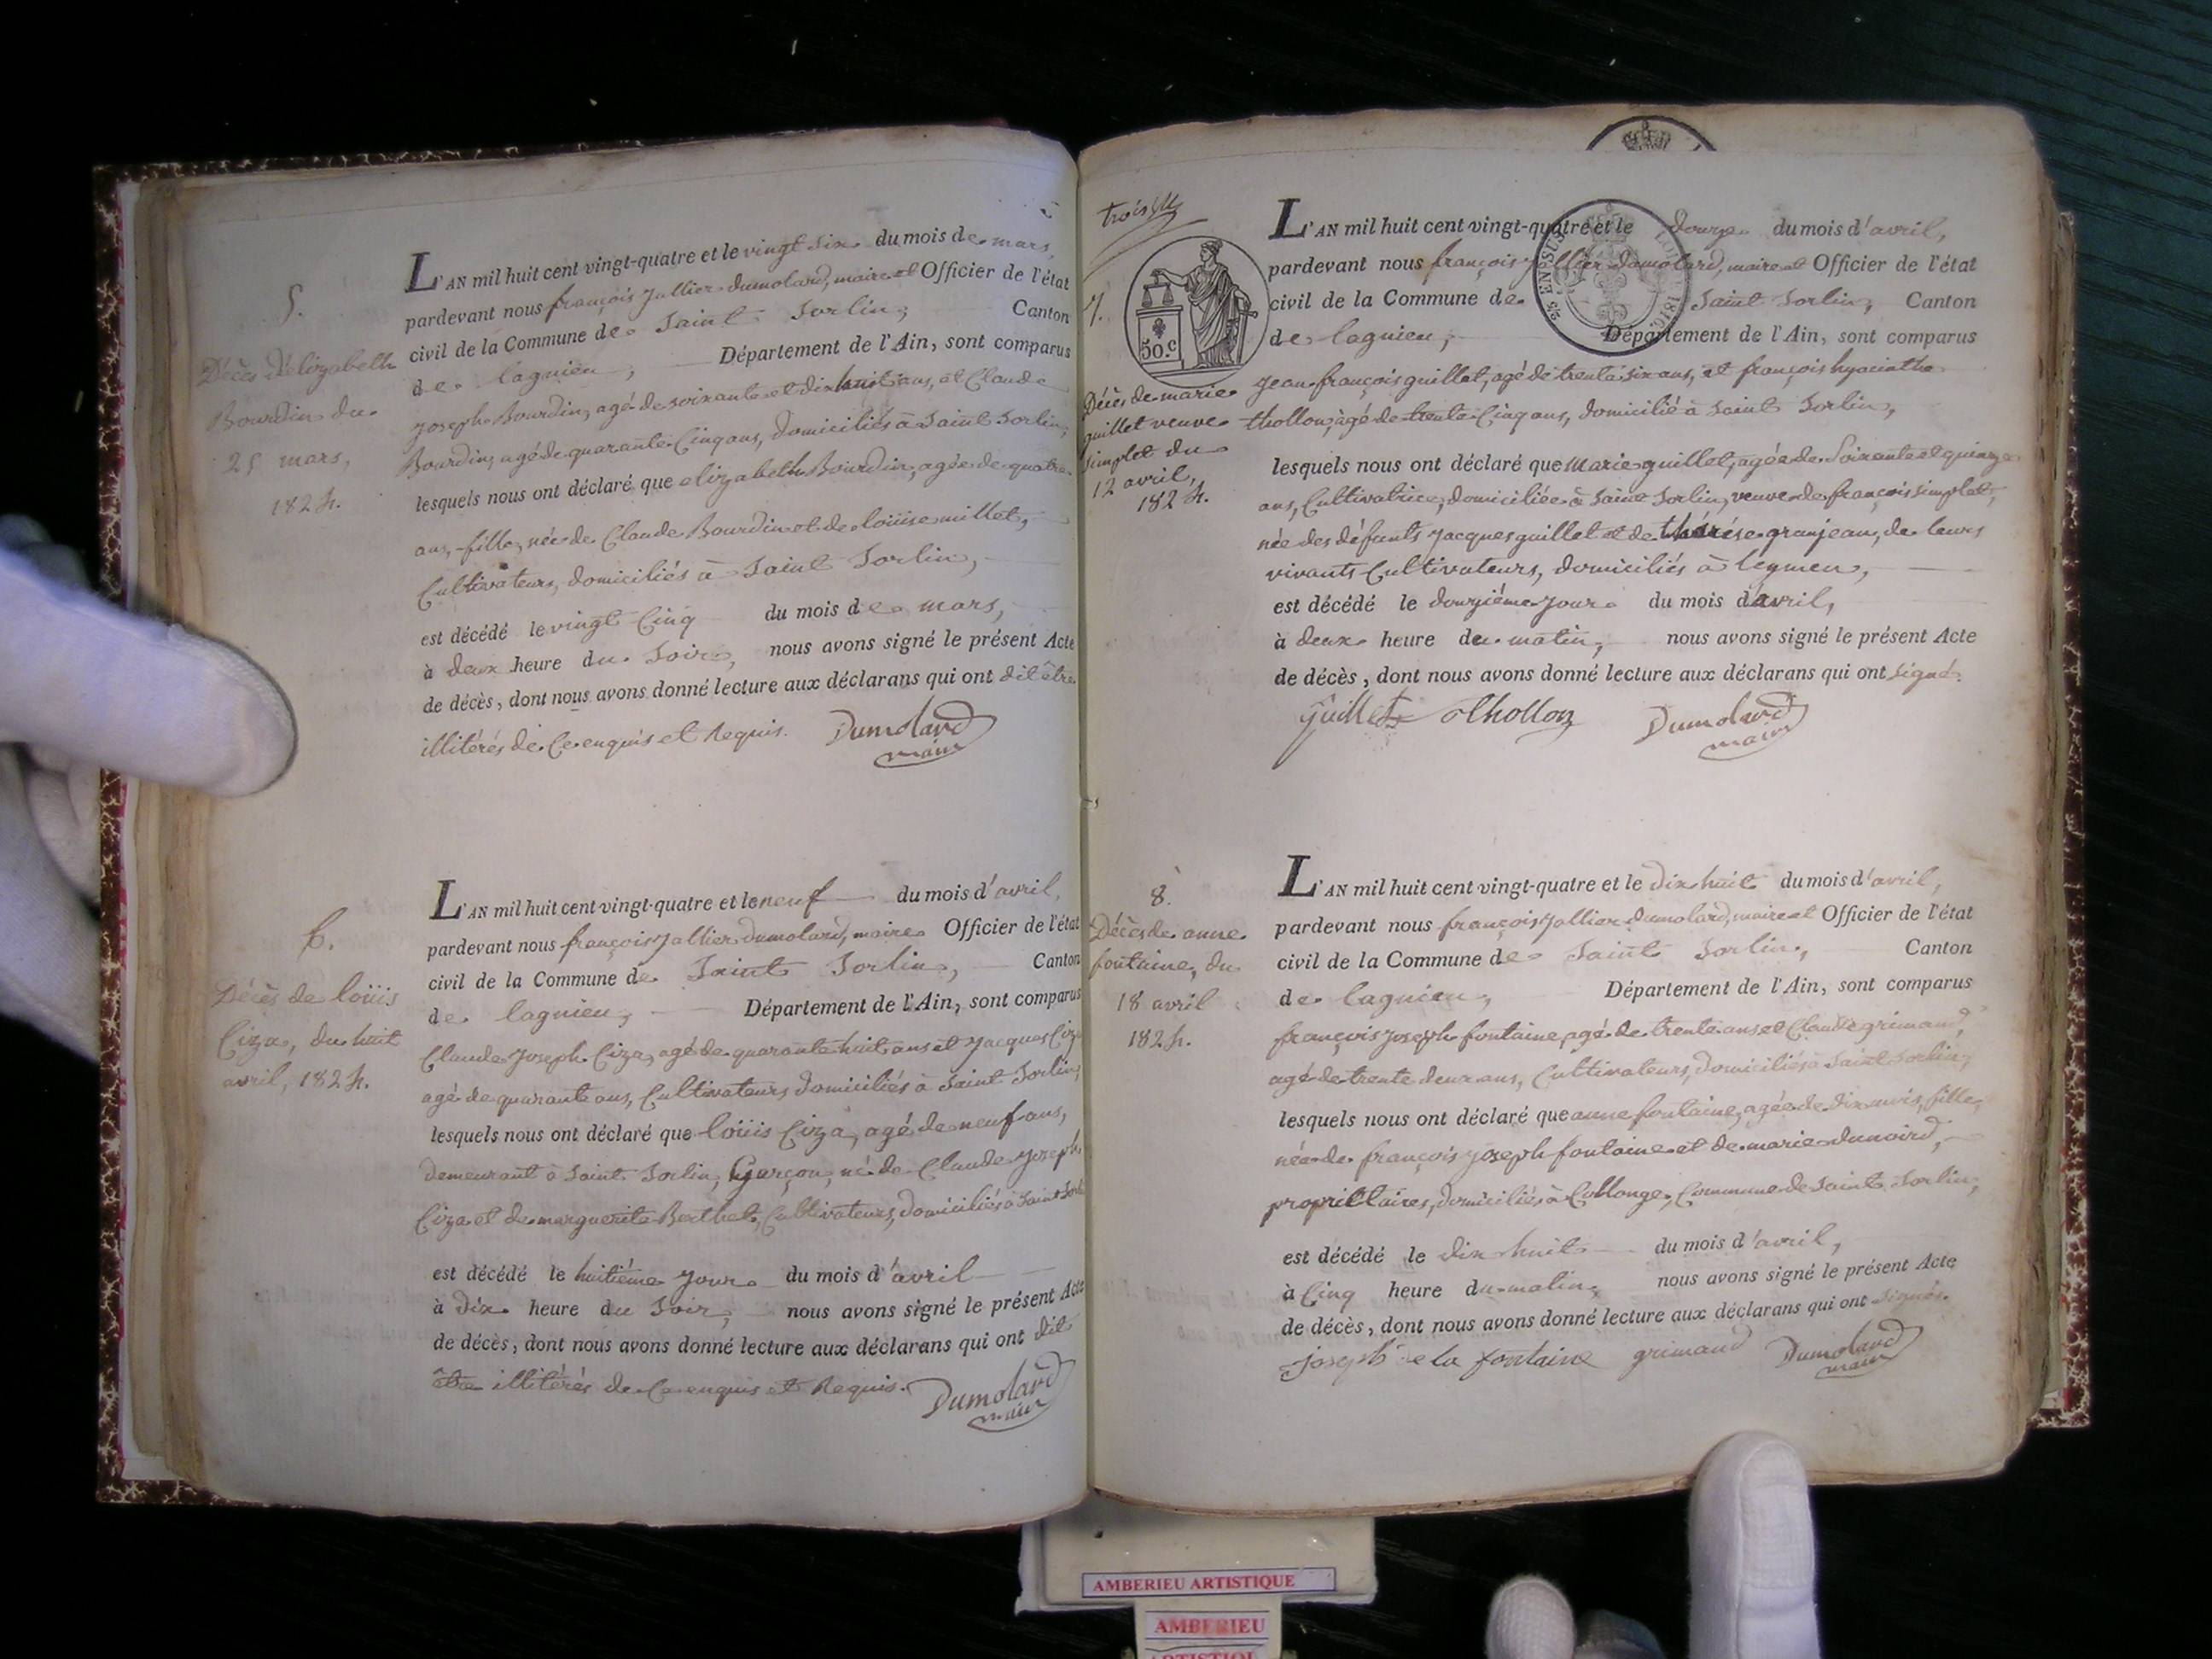 5.
Décès d'élizabeth
Bourdin du
25 mars,
1824.
L'AN mil huit cent vingt-quatre et le vingt six du mois de mars,
pardevant nous françois Jullier dumolard, maire et Officier de l'état
civil de la Commune de Saint Sorlin, Canton
de lagnieu, Département de l'Ain, sont comparus
joseph Bourdin, agé de soixante et dix huit ans, et Claude
Bourdin, agé de quarante cinq ans, domiciliés à Saint Sorlin,
lesquels nous ont déclaré que elizabeth Bourdin, agée de quatre
ans, fille, née de Claude Bourdin et de loüise millet,
Cultivateurs, domiciliés à Saint Sorlin,
est décédé le vingt Cinq du mois de mars,
à deux heure du Soir, nous avons signé le présent Acte
de décès, dont nous avons donné lecture aux déclarans qui ont dit être
illitérés de Ce enquis et Requis. Dumolard
maire
6.
Décès de loüis
Ciza, du huit
avril, 1824.
L'AN mil huit cent vingt-quatre et le neuf du mois d'avril,
pardevant nous françois Jullier dumolard, maire Officier de l'état
civil de la Commune de Saint Sorlin, Canton
de lagnieu, Département de l'Ain, sont comparus
Claude Joseph Ciza, agé de quarante huit ans et Jacques Ciza
agé de quarante ans, Cultivateurs domiciliés à Saint Sorlin,
lesquels nous ont déclaré que loüis Ciza, agé de neuf ans,
demeurant à Saint Sorlin, Garçon, né de Claude Joseph
Ciza et de marguerite Berthet, Cultivateurs, domiciliés à Saint Sorlin
est décédé le huitième jour du mois d'avril
à dix heure du Soir, nous avons signé le présent Acte
de décès, dont nous avons donné lecture aux déclarans qui ont dit
être illitérés de Ce enquis et Requis. Dumolard
maire
7.
50.c
Décès de marie
guillet veuve
simplet du
12 avril,
1824.
L'AN mil huit cent vingt-quatre et le douze du mois d'avril,
pardevant nous françois Jullier dumolard, maire et Officier de l'état
civil de la Commune de Saint Sorlin, Canton
de lagnieu, Département de l'Ain, sont comparus
Jean françois guillet, agé de trente six ans, et françois hyacinthe
thollon, agé de trente Cinq ans, domicilié à Saint Sorlin,
lesquels nous ont déclaré que Marie guillet, agée de Soixante et quinze
ans, Cultivatrice, domiciliée à Saint Sorlin, veuve de françois simplet,
née des défunts Jacques guillet et de thérése granjean, de leurs
vivants Cultivateurs, domiciliés à leymen,
est décédé le douzième jour du mois d'avril,
à deux heure du matin, nous avons signé le présent Acte
de décès, dont nous avons donné lecture aux déclarans qui ont signé.
guillet thollon Dumolard
maire
8.
Décès de anne
fontaine, du
18 avril
1824.
L'AN mil huit cent vingt-quatre et le dix huit du mois d'avril,
pardevant nous françois Jullier dumolard, maire et Officier de l'état
civil de la Commune de Saint Sorlin, Canton
de lagnieu, Département de l'Ain, sont comparus
françois joseph fontaine, agé de trente ans et Claude grimaud,
agé de trente deux ans, Cultivateurs, domiciliés à Saint Sorlin,
lesquels nous ont déclaré que anne fontaine, agée de dix mois, fille,
née de françois joseph fontaine et de marie dunoird,
propriétaires, domiciliés à Collonge, Commune de Saint Sorlin,
est décédé le dix huit du mois d'avril,
à Cinq heure du matin, nous avons signé le présent Acte
de décès, dont nous avons donné lecture aux déclarans qui ont signés.
joseph de la fontaine grimaud Dumolard
maire
AMBERIEU ARTISTIQUE
AMBERIEU
ARTISTIQUE